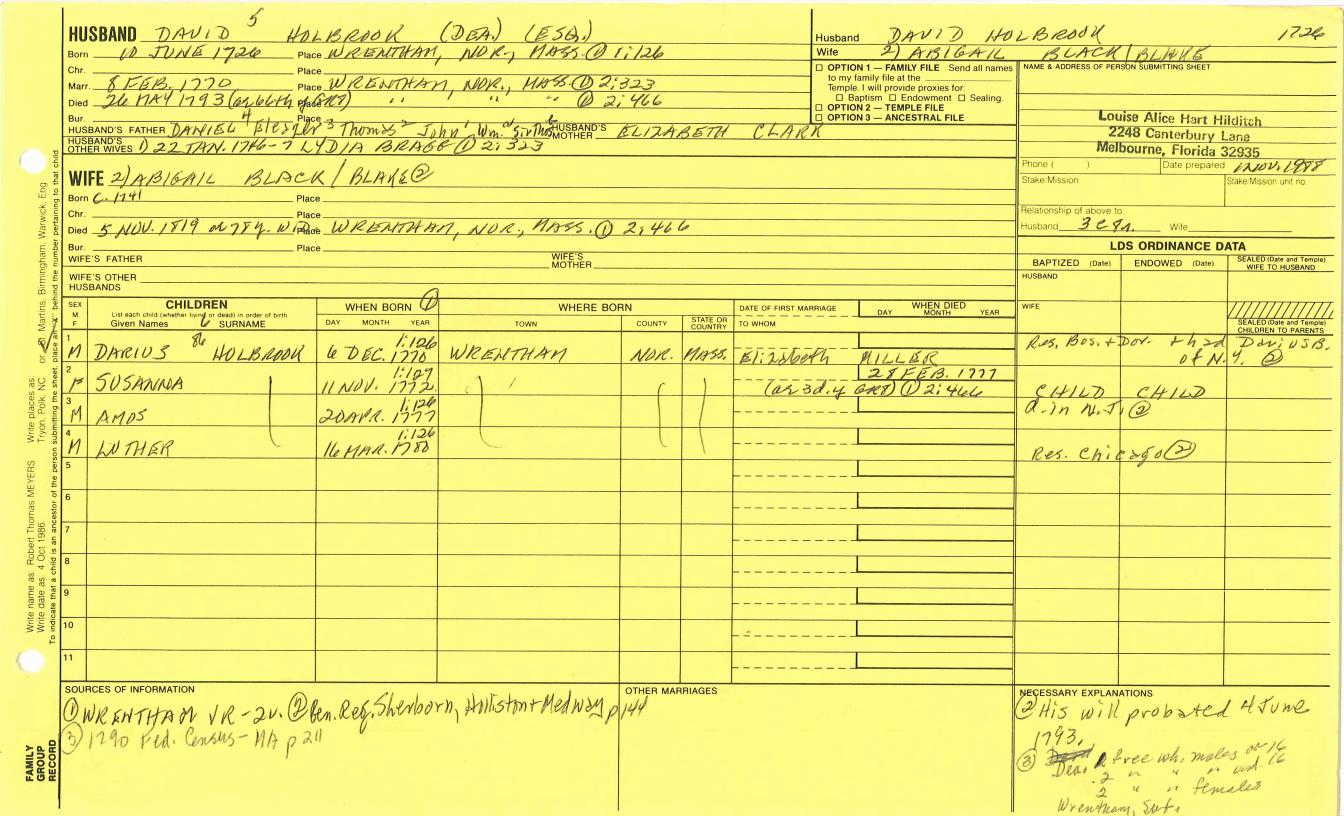 HUSBAND DAVID 5 HOLBROOK (DEA.) (ESQ.)
Born 10 JUNE 1726 Place WRENTHAM, NOR., MASS. ① 1:126
Chr. Place
Marr. 8 FEB. 1770 Place WRENTHAM, NOR., MASS. ① 2:323
Died 26 MAY 1793 (ae 66th y GR8) Place " " " ① 2:466
Bur. Place
HUSBAND'S FATHER DANIEL 4 Eleazer 3 Thomas 2 John 1 Wm. HUSBAND'S MOTHER ELIZABETH CLARK
HUSBAND'S OTHER WIVES 1) 22 JAN. 1746-7 LYDIA BRAGG ① 2:323
WIFE 2) ABIGAIL BLACK / BLAKE ②
Born c. 1741 Place
Chr. Place
Died 5 NOV. 1819 ae 78 y. Place WRENTHAM, NOR., MASS. ① 2:466
Bur. Place
WIFE'S FATHER WIFE'S MOTHER
WIFE'S OTHER HUSBANDS
Husband DAVID HOLBROOK 1726
Wife 2) ABIGAIL BLACK / BLAKE
☐ OPTION 1 — FAMILY FILE Send all names
to my family file at the
Temple. I will provide proxies for
☐ Baptism ☐ Endowment ☐ Sealing.
☐ OPTION 2 — TEMPLE FILE
☐ OPTION 3 — ANCESTRAL FILE
NAME & ADDRESS OF PERSON SUBMITTING SHEET
Louise Alice Hart Hilditch
2248 Canterbury Lane
Melbourne, Florida 32935
Phone ( ) Date prepared 1 NOV. 1988
Stake/Mission Stake/Mission unit no.
Relationship of above to
Husband 3C8r. Wife
LDS ORDINANCE DATA
BAPTIZED (Date) ENDOWED (Date) SEALED (Date and Temple) WIFE TO HUSBAND
HUSBAND
WIFE
SEALED (Date and Temple) CHILDREN TO PARENTS
SEX M F CHILDREN WHEN BORN ① WHERE BORN DATE OF FIRST MARRIAGE WHEN DIED
List each child (whether living or dead) in order of birth
Given Names 6 SURNAME DAY MONTH YEAR TOWN COUNTY STATE OR COUNTRY TO WHOM DAY MONTH YEAR
1 M DARIUS HOLBROOK 6 DEC. 1770 1:126 WRENTHAM NOR. MASS. Elizabeth MILLER Res. Bos. + Dor. + had Darius B. of N.Y. ②
2 F SUSANNA 11 NOV. 1772 1:127 28 FEB. 1777 (ae 3d.y GR8) ① 2:466 CHILD CHILD
3 M AMOS 20 APR. 1777 1:126 d. in N.J. ②
4 M LUTHER 16 MAR. 1780 1:126 Res. Chicago ②
5
6
7
8
9
10
11
SOURCES OF INFORMATION
① WRENTHAM VR - 2v. ② Gen. Reg. Sherborn, Holliston + Medway p 144
③ 1790 Fed. Census - MA p 211
OTHER MARRIAGES
NECESSARY EXPLANATIONS
② His will probated 4 June
1793.
③ Dea. 2 free wh. males ov 16
2 " " " und. 16
2 " " females
Wrentham, Suf.
Write name as: Robert Thomas MEYERS Write places as: Tryon, Polk, NC or St. Martins, Birmingham, Warwick, Eng
Write date as: 4 Oct 1986
To indicate that a child is an ancestor of the person submitting the sheet, place an "X" behind the number pertaining to that child
FAMILY GROUP RECORD